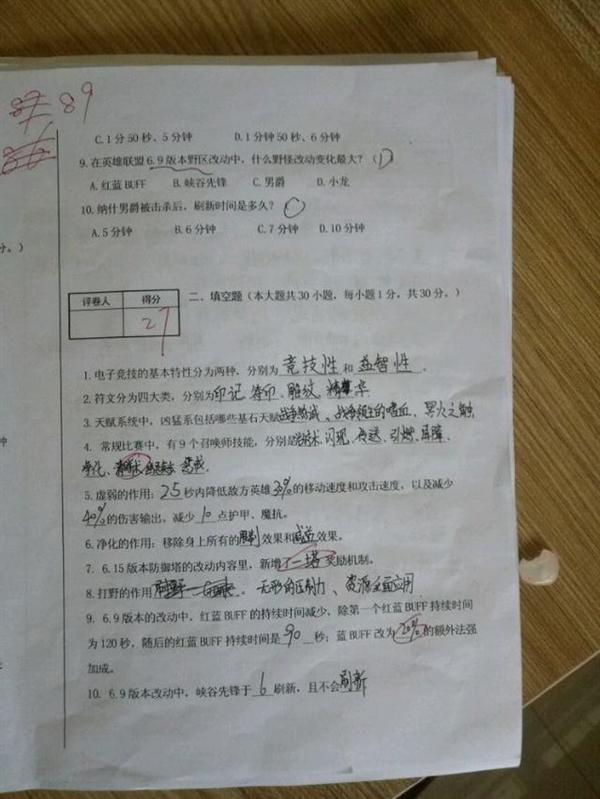 87 89
86
C.1分50秒、5分钟 D.1分钟50秒、6分钟
9.在英雄联盟6.9版本野区改动中，什么野怪改动变化最大？（D）
A.红蓝BUFF B.峡谷先锋 C.男爵 D.小龙
10.纳什男爵被击杀后，刷新时间是多久？
A.5分钟 B.6分钟 C.7分钟 D.10分钟
分。）
评卷人 得分
27
二、填空题（本大题共30小题，每小题1分，共30分。）
1.电子竞技的基本特性分为两种，分别为 竞技性 和 益智性 .
2.符文分为四大类，分别为印记、符印、雕纹、精华
3.天赋系统中，凶猛系包括哪些基石天赋战争热诚、战争领主的嗜血、冥火之触
4. 常规比赛中，有9个召唤师技能，分别是治疗术、闪现、传送、引燃、屏障、
净化、 惩戒.
5.虚弱的作用：2.5秒内降低敌方英雄30%的移动速度和攻击速度，以及减少
40%的伤害输出，减少10点护甲、魔抗。
6.净化的作用：移除身上所有的限制效果和减益效果。
7. 6.15版本防御塔的改动内容里，新增了一塔奖励机制。
8.打野的作用 无形的压制力、资源全面应用
9. 6.9版本的改动中，红蓝BUFF的持续时间减少，除第一个红蓝BUFF持续时间
为120秒，随后的红蓝BUFF持续时间是90秒；蓝BUFF改为20%的额外法强
加成。
10. 6.9版本改动中，峡谷先锋于6刷新，且不会刷新
钟